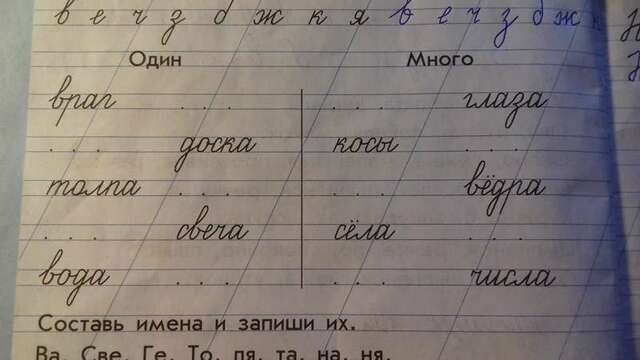 в е ч з б ж к я в е ч з б ж к
Один Много
враг . . . . . . глаза
. . . доска косы . . .
толпа . . . . . . вёдра
. . . свеча сёла . . .
вода . . . . . . числа
Составь имена и запиши их.
Ва, Све, Ге, То, ля, та, на, ня.